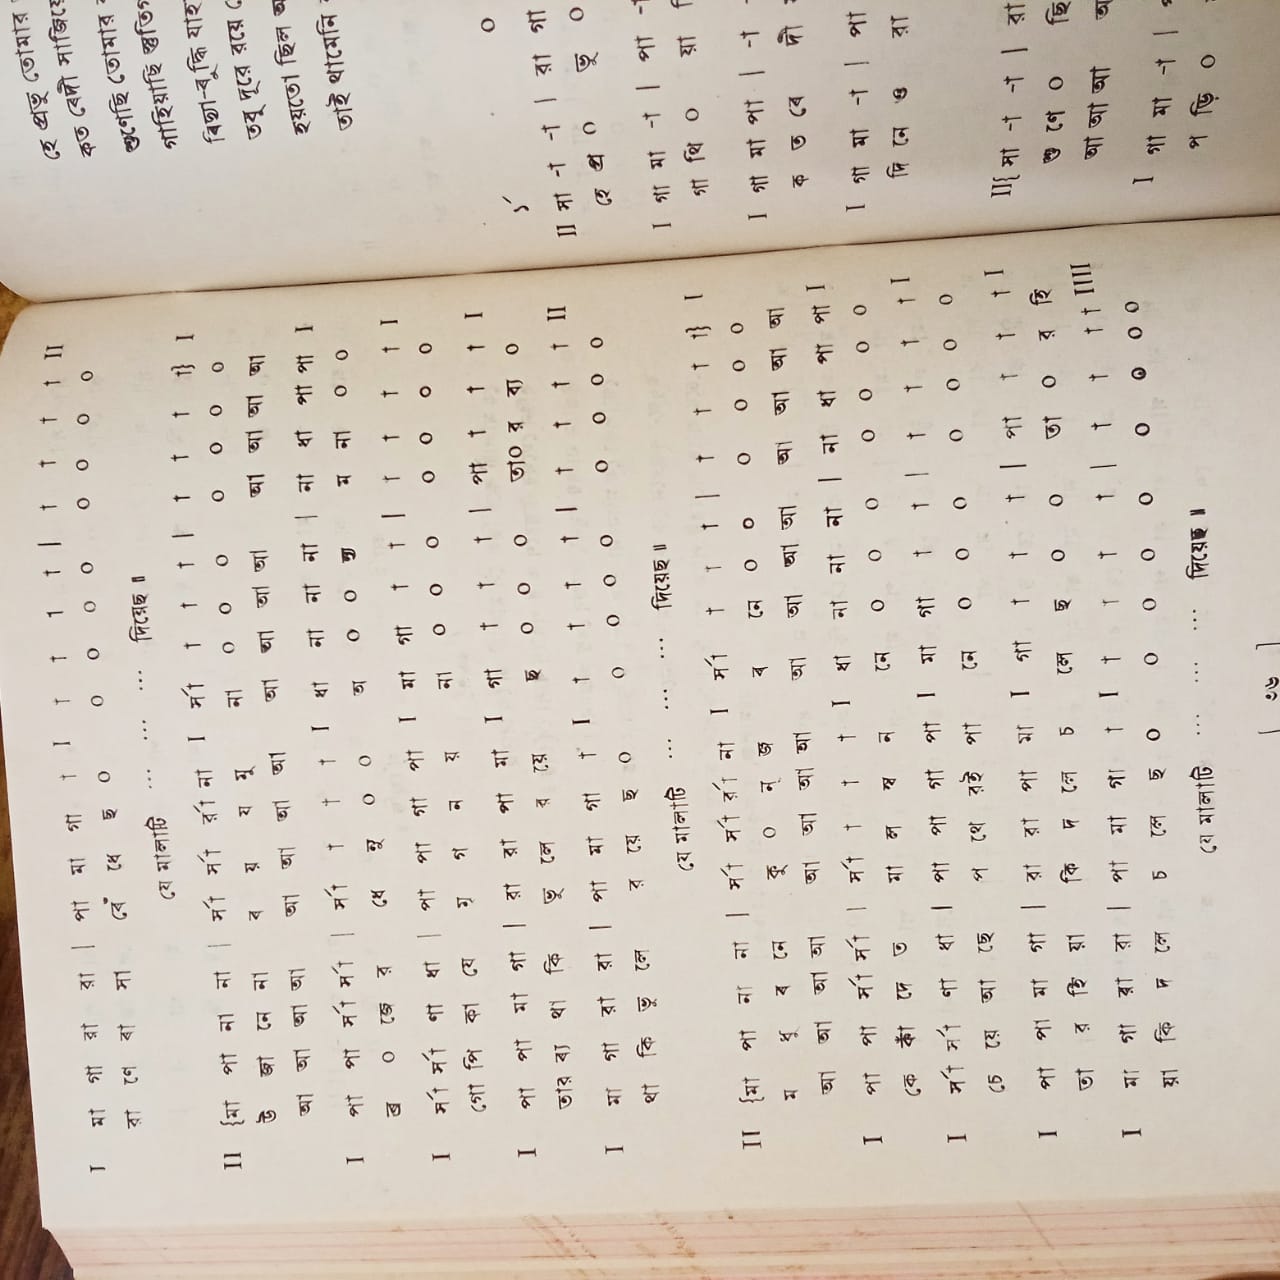 I মা গা রা রা | পা মা গা † I † † 1 † | † † † † II
রা ণে বা সা বেঁ ধে ছ ০ ০ ০ ০ ০ ০ ০ ০ ০
যে মালাটি ... ... ... দিয়েছ ॥
II {মা পা না না | র্সা র্সা র্রা না I র্সা † † † | † † † †} I
উ জা নে না ব য় য মু না ০ ০ ০ ০ ০ ০ ০
আ আ আ আ আ আ আ আ আ আ আ আ আ আ আ আ
I পা পা র্সা র্সা | র্সা † † † I ধা না না না | না ধা পা পা I
ব্র ০ জে র ধে নু ০ ০ অ ০ ০ ম না ০ ০
I র্সা র্সা ণা ধা | পা পা গা পা I মা গা † † | † † † † I
গো পি কা যে গৃ গ ন য় না ০ ০ ০ ০ ০ ০ ০
I পা পা মা গা | রা রা পা মা I গা † † † | পা † † † I
তার ব্য থা কি ভু লে র য়ে ছ ০ ০ ০ তা০ র ব্য ০
I মা গা রা রা | পা মা গা † I † † † † | † † † † II
থা কি ভু লে র য়ে ছ ০ ০ ০ ০ ০ ০ ০ ০ ০
যে মালাটি ... ... ... দিয়েছ ॥
II {মা পা না না | র্সা র্সা র্রা না I র্সা † † † | † † † †} I
ম ধু ব নে কু ০ ন্ জ ব নে ০ ০ ০ ০ ০ ০
আ আ আ আ আ আ আ আ আ আ আ আ আ আ আ আ
I পা পা র্সা র্সা | র্সা † † † I ধা না না না | না ধা পা পা I
কে কাঁ দে ত মা ল ব ন নে ০ ০ ০ ০ ০ ০ ০
I র্সা র্সা ণা ধা | পা পা গা পা I মা গা † † | † † † † I
চে য়ে আ ছে প থে রই পা নে ০ ০ ০ ০ ০ ০ ০
I পা পা মা গা | রা রা পা মা I গা † † † | পা † † † I
তা র হি য়া কি দ লে চ লে ছ ০ ০ তা ০ র হি
I মা গা রা রা | পা মা গা † I † † † † | † † † † IIII
য়া কি দ লে চ লে ছ ০ ০ ০ ০ ০ ০ ০ ০ ০
যে মালাটি ... ... ... দিয়েছ ॥
হে প্রভু তোমার
কত বেদী সাজিয়ে
শুণেছি তোমার
গাহিয়াছি স্তুতি
বিদ্যা-বুদ্ধি যাহ
তবু দূরে রয়ে
হয়তো ছিল
তাই থামেনি
II সা -া -া | রা গা
হে প্র ০ ভু ০
I গা মা -া | পা -া
গা থি ০ য়া
I গা মা পা | -া
ক ত বে দী
I গা মা -া | পা
দি নে ও রা
II{ সা -া -া | রা
শু ণে ০ ছি
আ আ আ
I গা মা -া |
প ড়ি ০